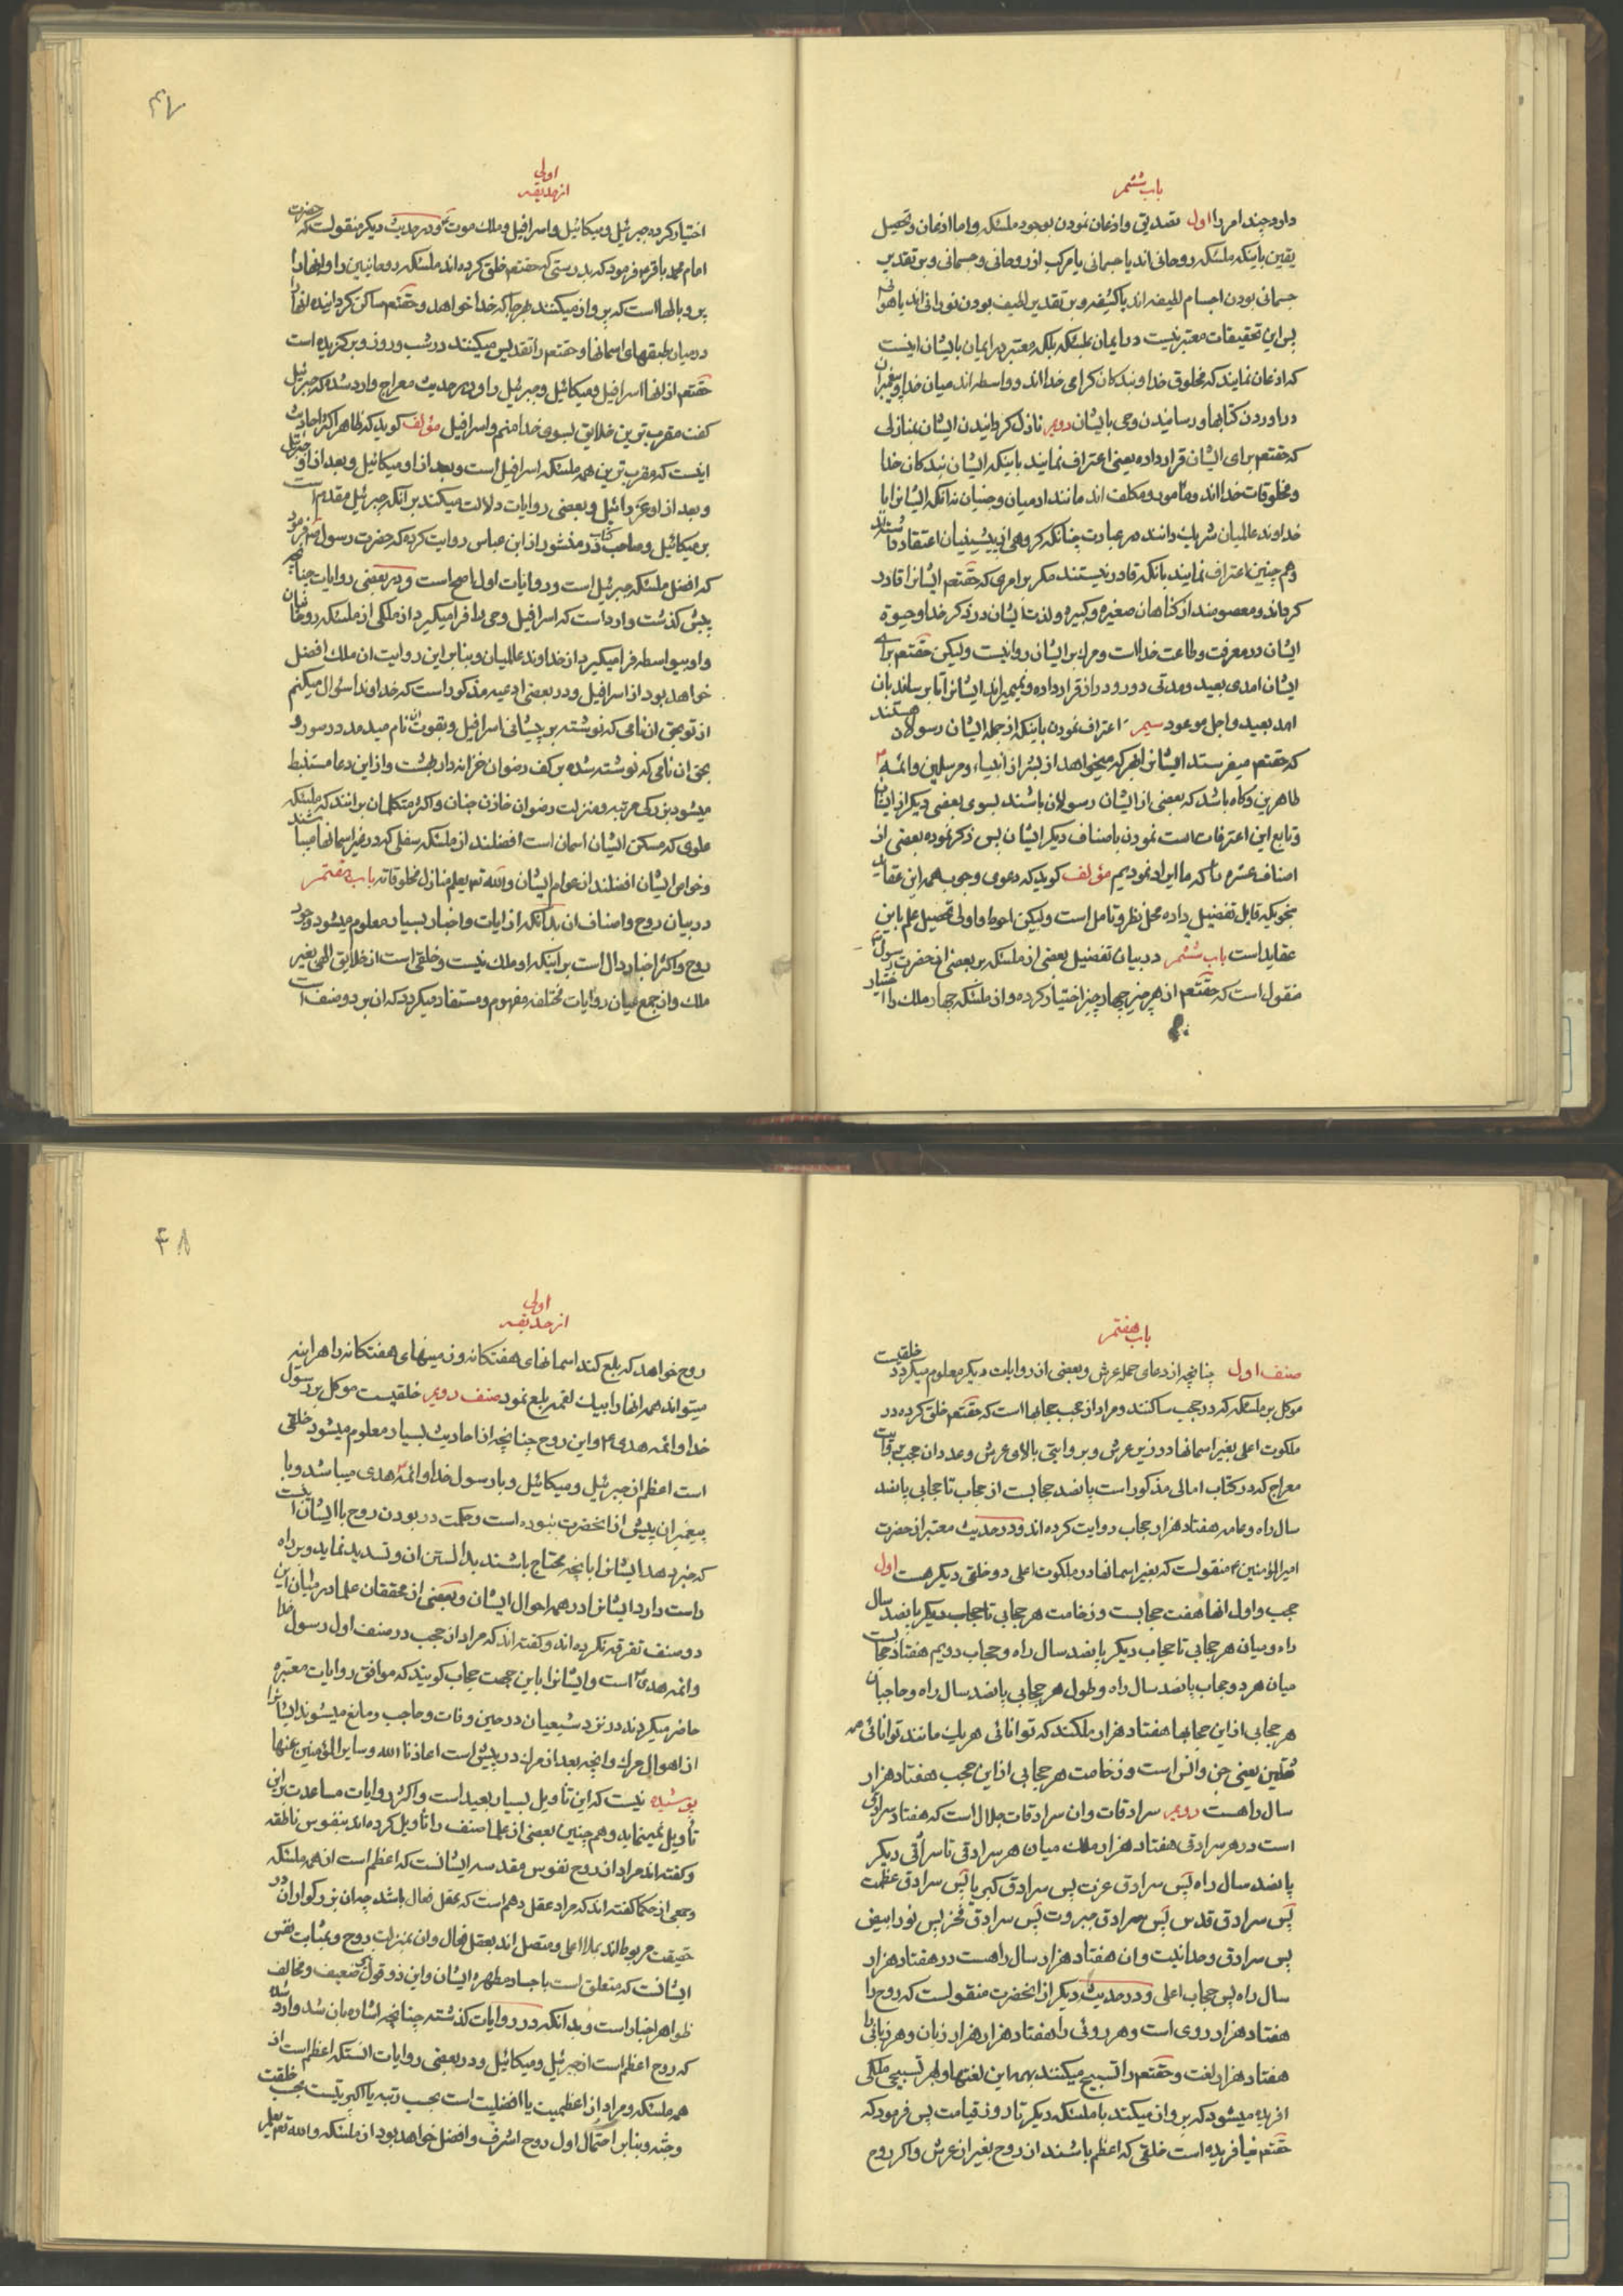 باب ششم
دارد چند امر را اول تصدیق و اذعان نمودن بوجود ملئکه و اما اذعان و تحصیل
یقین باینکه ملئکه روحانی اند یا جسمانی یا مرکب از روحانی و جسمانی و بر تقدیر
جسمانی بودن اجسام لطیفه اند یا کثیفه و بر تقدیر لطیف بودن نورانی اند یا هوائی
پس این تحقیقات معتبر نیست در ایمان بملئکه بلکه معتبر در ایمان بایشان اینست
که اذعان نمایند که مخلوق خدا و بندکان کرامی خدااند و واسطه اند میان خدا و پیغمبران
در اوردن کتابها و رسانیدن وحی بایشان دویم نازل کردانیدن ایشان بمنازلی
که حقتعم برای ایشان قرار داده یعنی اعتراف نمایند باینکه ایشان بندکان خدا
و مخلوقات خدااند و مأمور و مکلف اند مانند ادمیان و جنیان نه انکه ایشانرا با
خداوند عالمیان شریک دانند در عبادت چنانکه کروهی از پیشینیان اعتقاد داشته‌اند
و هم چنین اعتراف نمایند بانکه قادر نیستند مکر بر امری که حقتعم ایشانرا قادر
کرداند و معصومند از کناهان صغیره و کبیره و لذت ایشان در ذکر خدا و حیوة
ایشان در معرفت و طاعت خداست و مرک بر ایشان روانیست ولیکن حقتعم برای
ایشان امدی بعید و مدتی دور و دراز قرار داده و نمیمیراند ایشانرا تا برساند بان
امد بعید و اجل موعود سیم اعتراف نمودن باینکه از جمله ایشان رسولان هستند
که حقتعم میفرستد ایشانرا بهر که میخواهد از بشر از انبیاء و مرسلین و ائمه
طاهرین و کاه باشد که بعضی از ایشان رسولان باشند بسوی بعضی دیکر از ایشان
و تابع این اعترافات است نمودن باصناف دیکر ایشان پس ذکر نموده بعضی از
اصناف عشره را که ما ایراد نمودیم مؤلف کوید که دعوی وجوب همه این عقاید
بنحویکه قابل تفضیل داده محل نظر و تامل است ولیکن احوط و اولی تحصیل علم باین
عقاید است باب ششم در بیان تفضیل بعضی از ملئکه بر بعضی از حضرت رسول
منقول است که حقتعم از هر چیز چهار چیز اختیار کرده و از ملئکه چهار ملک را اختیار
۴۷
اولی
از حدیقه
اختیار کرده جبرئیل و میکائیل و اسرافیل و ملک موت و در حدیث دیکر منقولست که حضرت
امام محمد باقر فرمود که بدرستی که حقتعم خلق کرده اند ملئکه روحانیین را و انها را
پر و بالها است که پرواز میکنند هر جا که خدا خواهد و حقتعم ساکن کردانیده انها را
در میان طبقهای اسمانها و حقتعم را تقدیس میکنند در شب و روز و برکزیده است
حقتعم از انها اسرافیل و میکائیل و جبرئیل را و در حدیث معراج وارد شده که جبرئیل
کفت مقرب ترین خلایق بسوی خدا منم و اسرافیل مؤلف کوید که ظاهر اکثر احادیث
اینست که مقرب ترین همه ملئکه اسرافیل است و بعد از او میکائیل و بعد از او جبرئیل
و بعد از او عزرائیل و بعضی روایات دلالت میکند بر آنکه جبرئیل مقدم است
بر میکائیل و صاحب کتاب در منثور از ابن عباس روایت کرده که حضرت رسول فرمود
که افضل ملئکه جبرئیل است و روایات اول اصح است و در بعضی روایات چنانچه
پیش کذشت وارد است که اسرافیل وحی را فرا میکیرد از ملکی از ملئکه روحانیان
و او بیواسطه فرا میکیرد از خداوند عالمیان و بنابر این روایت ان ملک افضل
خواهد بود از اسرافیل و در بعضی ادعیه مذکور است که خداوندا سؤال میکنم
از تو بحق ان نامی که نوشته بر پیشانی اسرافیل و بقوت ان نام میدمد در صور و
بحق ان نامی که نوشته شده بر کف رضوان خزانه دار بهشت و از این دعا مستنبط
میشود بزرکی مرتبه و منزلت رضوان خازن جنان و اکثر متکلمان برانند که ملئکه
علوی که مسکن ایشان اسمان است افضلند از ملئکه سفلی که در غیر اسمانها میباشند
و خواص ایشان افضلند از عوام ایشان والله تعم یعلم منازل مخلوقاته باب هفتم
در بیان روح و اصناف ان بدانکه از ایات و اخبار بسیار معلوم میشود وجود
روح و اکثر اخبار دال است بر اینکه او ملک نیست و خلقی است از خلایق الهی بغیر
ملک و از جمع میان روایات مختلفه مفهوم و مستفاد میکردد که ان بر دو صنف است
باب هفتم
صنف اول چنانچه از دعای حمله عرش و بعضی از روایات دیکر معلوم میکردد خلقیست
موکل بر ملئکه که در حجب ساکنند و مراد از حجب حجابها است که حقتعم خلق کرده در
ملکوت اعلی بغیر اسمانها در زیر عرش و بروایتی بالای عرش و عدد ان حجب بروایت
معراج که در کتاب امالی مذکور است پانصد حجابست از حجاب تا حجابی پانصد
سال راه و عامه هفتاد هزار حجاب روایت کرده اند و در حدیث معتبر از حضرت
امیر المؤمنین ع منقولست که بغیر اسمانها در ملکوت اعلی دو خلق دیکر هست اول
حجب و اول انها هفت حجابست و ضخامت هر حجابی تا حجاب دیکر پانصد سال
راه و میان هر حجابی تا حجاب دیکر پانصد سال راه و حجاب دویم هفتاد حجابست
میان هر دو حجاب پانصد سال راه و طول هر حجابی پانصد سال راه و حاجبان
هر حجابی از این حجابها هفتاد هزار ملکند که توانائی هر یک مانند توانائی همه
ثقلین یعنی جن و انس است و ضخامت هر حجابی از این حجب هفتاد هزار
سال راهست دویم سرادقات و ان سرادقات جلال است که هفتاد سرادق
است در هر سرادقی هفتاد هزار ملک میان هر سرادقی تا سرادقی دیکر
پانصد سال راه پس سرادق عزت پس سرادق کبریا پس سرادق عظمت
پس سرادق قدس پس سرادق جبروت پس سرادق فخر پس نور ابیض
پس سرادق وحدانیت و ان هفتاد هزار سال راهست در هفتاد هزار
سال راه پس حجاب اعلی و در حدیث دیکر از انحضرت منقولست که روح را
هفتاد هزار روی است و هر روئی را هفتاد هزار هزار زبان و هر زبانی را
هفتاد هزار لغت و حقتعم را تسبیح میکنند بهمه این لغتها و بهر تسبیحی ملکی
افریده میشود که پرواز میکند با ملئکه دیکر تا روز قیامت پس فرمود که
حقتعم نیافریده است خلقی که اعظم باشند از روح بغیر از عرش و اکر روح
۴۸
اولی
از حدیقه
روح خواهد که بلع کند اسمانهای هفتکانه و زمینهای هفتکانه را هراینه
میتواند همه انها را بیک لقمه بلع نمود صنف دویم خلقیست موکل بر رسول
خدا و ائمه هدی ع و این روح چنانچه از احادیث بسیار معلوم میشود خلقی
است اعظم از جبرئیل و میکائیل و با رسول خدا و ائمه هدی میباشد و با
پیغمبران پیش از انحضرت نبوده است و حکمت در بودن روح با ایشان اینست
که خبر دهد ایشانرا بانچه محتاج باشند بدانستن ان و تسدید نماید و بر راه
راست دارد ایشانرا در همه احوال ایشان و بعضی از محققان علما در میان این
دو صنف تفرقه نکرده اند و کفته اند که مراد از حجب در صنف اول رسول خدا
و ائمه هدی است و ایشانرا باین جهت حجاب کویند که موافق روایات معتبره
حاضر میکردند در نزد شیعیان در حین وفات و حاجب و مانع میشوند ایشانرا
از اهوال مرک و انچه بعد از مرک در پیش است اعاذنا الله و سایر المؤمنین عنها
پوشیده نیست که این تأویل بسیار بعید است و اکثر روایات مساعدت بر این
تأویل نمینماید و هم چنین بعضی از علما صنف را تاویل کرده اند بنفوس ناطقه
و کفته اند مراد از روح نفوس مقدسه ایشانست که اعظم است از همه ملئکه
و جمعی از حکما کفته اند که مراد عقل دهم است که عقل فعال باشد چه ان بزرکواران در
حقیقت مربوط اند بملا اعلی و متصل اند بعقل فعال و ان بمنزله روح و بمثابت نفس
ایشانست که متعلق است باجساد مطهره ایشان و این دو قول ضعیف و مخالف
ظواهر اخبار است و بدانکه در روایات کذشته چنانچه اشاره بان شد وارد شده
که روح اعظم است از جبرئیل و میکائیل و در بعضی روایات انستکه اعظم است از
همه ملئکه و مراد از اعظمیت یا افضلیت است بحسب رتبه یا اکبریت است بحسب خلقت
و جثه و بنابر احتمال اول روح اشرف و افضل خواهد بود از ملئکه والله تعم یعلم